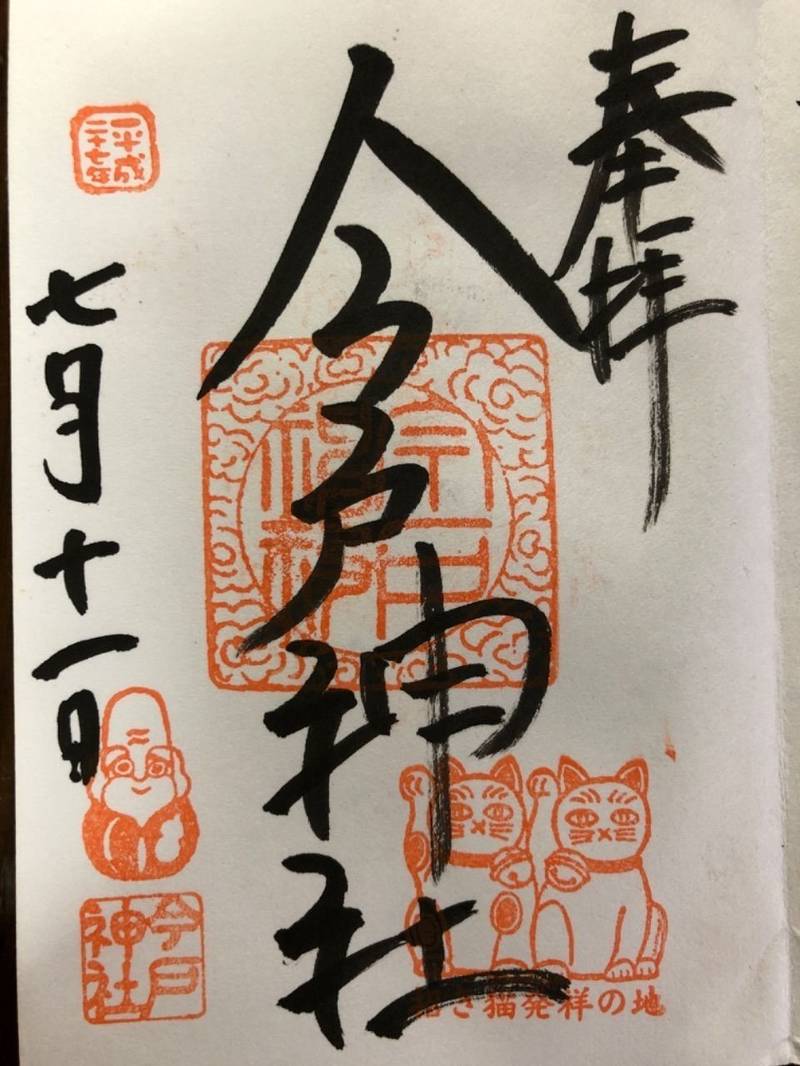 奉拝
今戸神社
招き猫発祥の地
平成
二十七年
七月十一日
今戸
神社